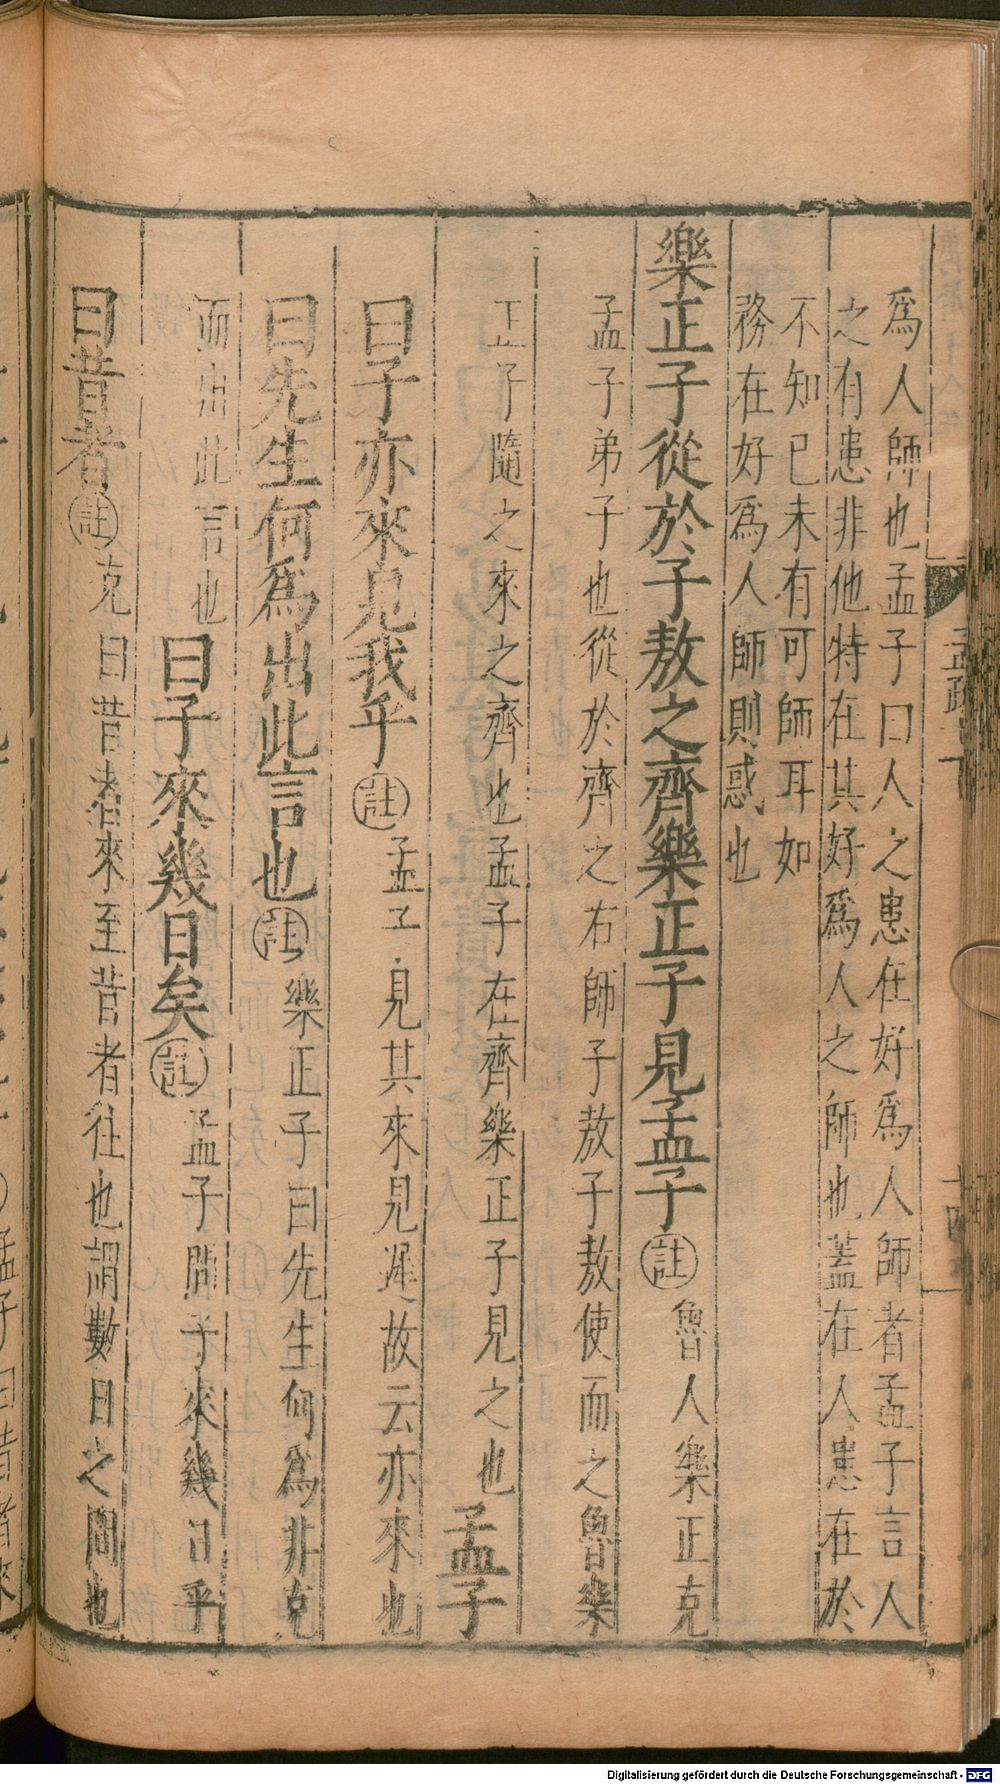 爲人師也孟子曰人之患在好爲人師者孟子言人
之有患非他特在其好爲人之師也蓋在人患在於
不知已未有可師耳如
務在好爲人師則惑也
樂正子從於子敖之齊樂正子見孟子註魯人樂正克
孟子弟子也從於齊之右師子敖子敖使而之魯樂
正子隨之來之齊也孟子在齊樂正子見之也孟子
曰子亦來見我乎註孟子見其來見遲故云亦來也
曰先生何爲出此言也註樂正子曰先生何爲非克
而出此言也曰子來幾日矣註孟子問子來幾日乎
曰昔者註克曰昔者來至昔者往也謂數日之間也
Digitalisierung gefördert durch die Deutsche Forschungsgemeinschaft - DFG